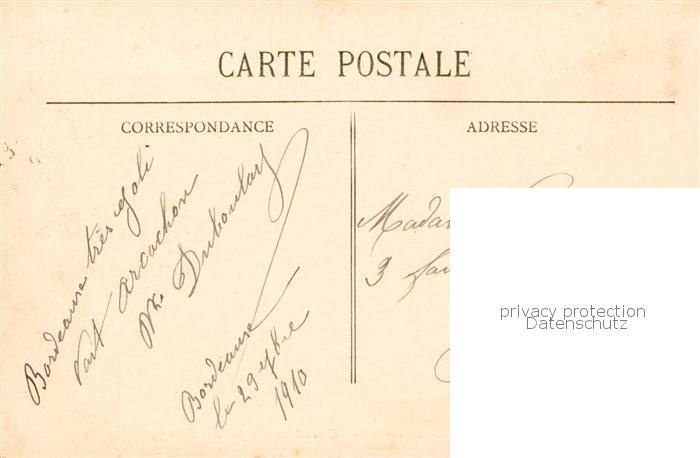 CARTE POSTALE
CORRESPONDANCE
ADRESSE
Bordeaux très joli
Arcachon
Duboulard
Bordeaux
le 29
1910
3
privacy protection
Datenschutz